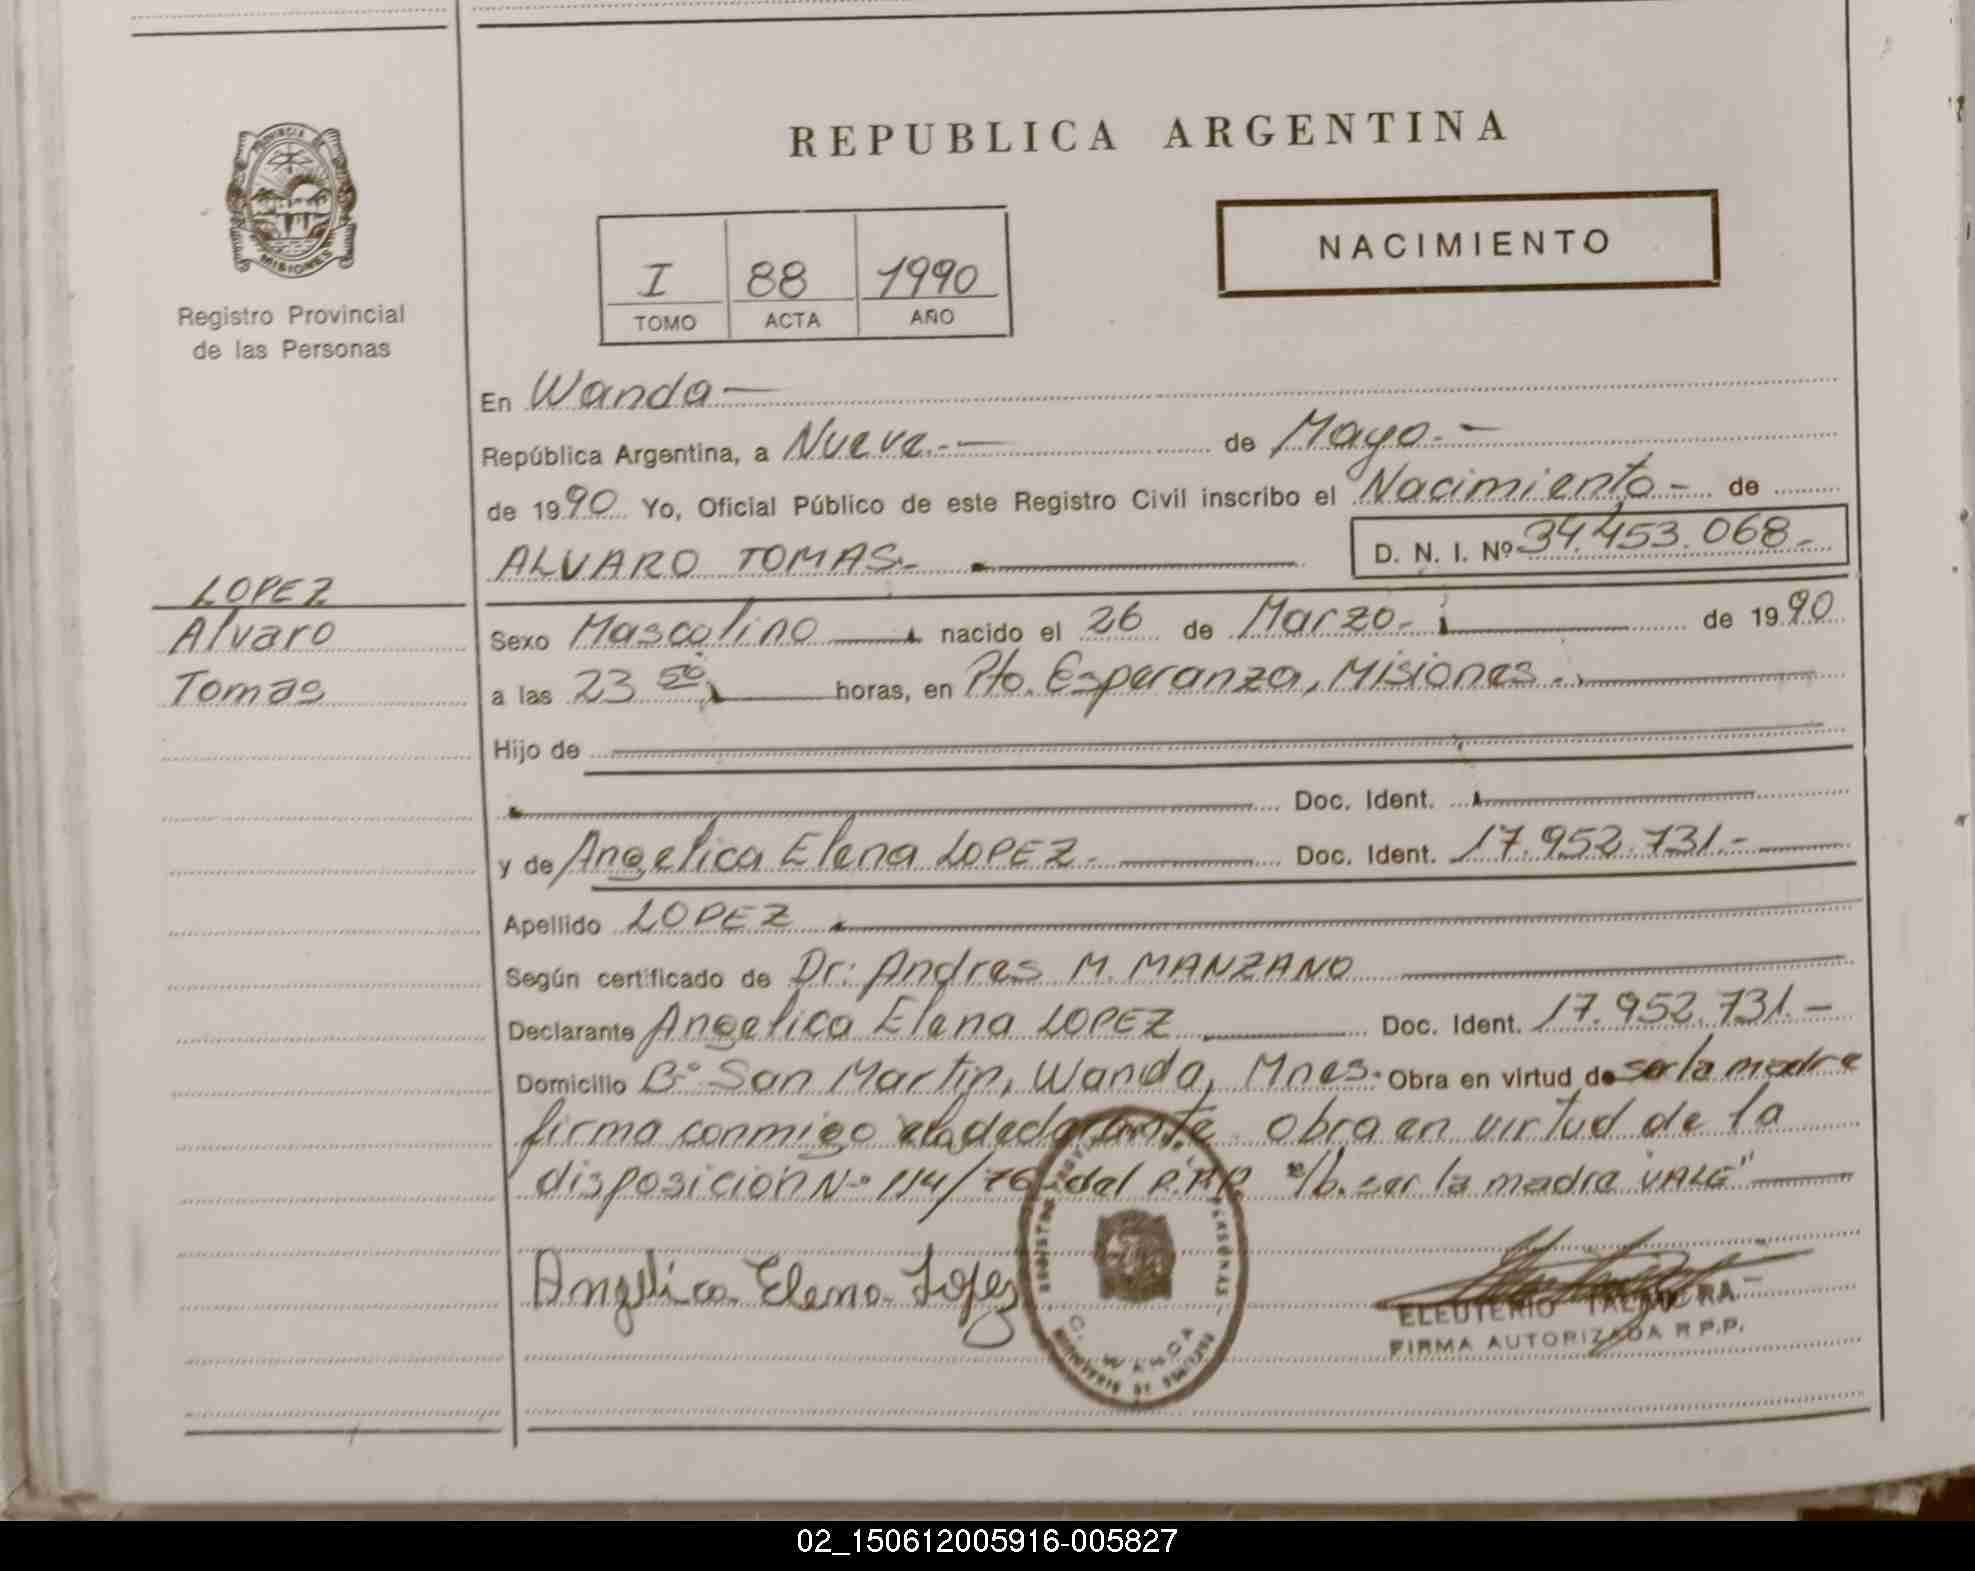 REPUBLICA ARGENTINA
NACIMIENTO
PROVINCIA DE
MISIONES
Registro Provincial
de las Personas
I 88 1990
TOMO ACTA AÑO
En Wanda —
República Argentina, a Nueve.- — de Mayo.-
de 1990 Yo, Oficial Público de este Registro Civil inscribo el Nacimiento - de
ALVARO TOMAS.- D. N. I. Nº 34.453.068-
LOPEZ
Alvaro
Tomas
Sexo Masculino nacido el 26 de Marzo.- de 1990
a las 23 50 horas, en Pto. Esperanza, Misiones.
Hijo de
Doc. Ident.
y de Angelica Elena LOPEZ.- Doc. Ident. 17.952.731.-
Apellido LOPEZ
Según certificado de Dr: Andres M. MANZANO
Declarante Angelica Elena LOPEZ Doc. Ident. 17.952.731.-
Domicilio Bº San Martin, Wanda, Mnes. Obra en virtud de ser la madre
firma conmigo declarante obra en virtud de la
disposición Nº 114/76 del R.P.P. ser la madre "VALE"
Angelica Elena Lopez
ELEUTERIO
FIRMA AUTORIZADA R.P.P.
02_150612005916-005827